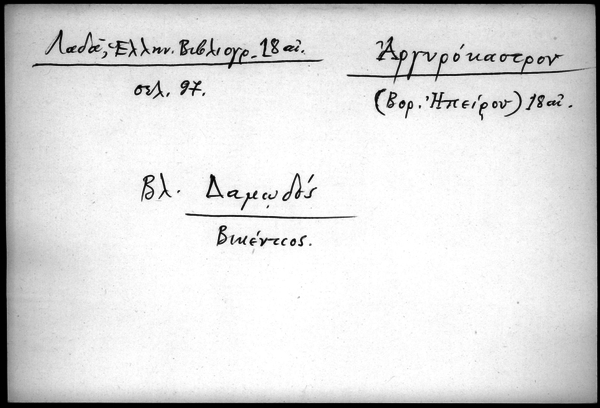 Λαδᾶ, Ἑλλην. Βιβλιογρ. 18 αἰ.
σελ. 97.
Ἀργυρόκαστρον
(Βορ. Ἠπείρου) 18 αἰ.
Βλ. Δαμῳδός
Βικέντιος.